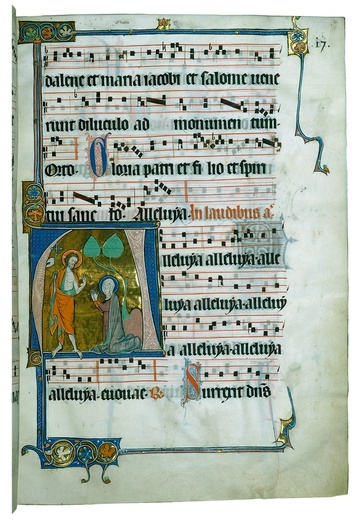 17.
dalene et maria iacobi et salome uene
runt diluculo ad monumentum
Orto. Gloria patri et fi lio et spiri
tui sanc to. Alleluya. In laudibus a.
lleluya alleluya alle
luya alleluya alleluy
a alleluya alleluya
alleluya. euouae. Surrexit dns